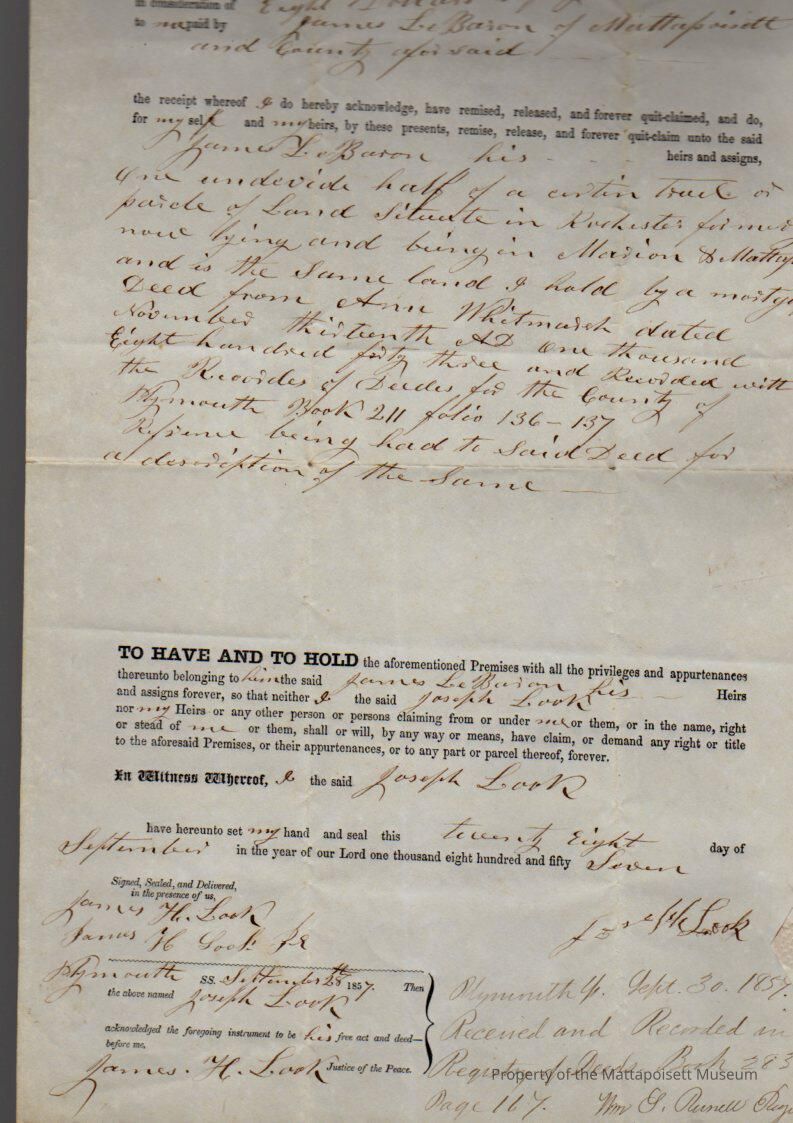 in consideration of Eight Dollars
to me paid by James LeBaron of Mattapoisett
and County aforsaid
the receipt whereof I do hereby acknowledge, have remised, released, and forever quit-claimed, and do,
for my self and my heirs, by these presents, remise, release, and forever quit-claim unto the said
James LeBaron his heirs and assigns,
One undivide half of a certin tract or
parcle of Land Situate in Rochester former
now lying and being in Marion & Mattap
and is the Same land I hold by a mortg
Deed from Ann Whitmarsh dated
November thirteenth AD One thousand
Eight hundred fifty three and Recorded with
the Recordes of Deedes for the County of
Plymouth Book 211 folio 136-137
Refrence being had to Said Deed for
a description of the Same
TO HAVE AND TO HOLD the aforementioned Premises with all the privileges and appurtenances
thereunto belonging to him the said James LeBaron his Heirs
and assigns forever, so that neither I the said Joseph Look
nor my Heirs or any other person or persons claiming from or under me or them, or in the name, right
or stead of me or them, shall or will, by any way or means, have claim, or demand any right or title
to the aforesaid Premises, or their appurtenances, or to any part or parcel thereof, forever.
In Witness Whereof, I the said Joseph Look
have hereunto set my hand and seal this twenty Eight day of
September in the year of our Lord one thousand eight hundred and fifty Seven
Signed, Sealed, and Delivered,
in the presence of us,
James H. Look
James H Look Jr
Joseph Look
Plymouth SS. September 28th 1857. Then
the above named Joseph Look
acknowledged the foregoing instrument to be his free act and deed—
before me,
James. H. Look Justice of the Peace.
Plymouth ss. Sept. 30. 1857.
Received and Recorded in
Registry of Deeds Book 283
Page 167. Wm S. Russell Reg
Property of the Mattapoisett Museum